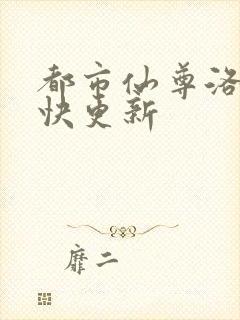 都市仙尊洛
快更新
靡二